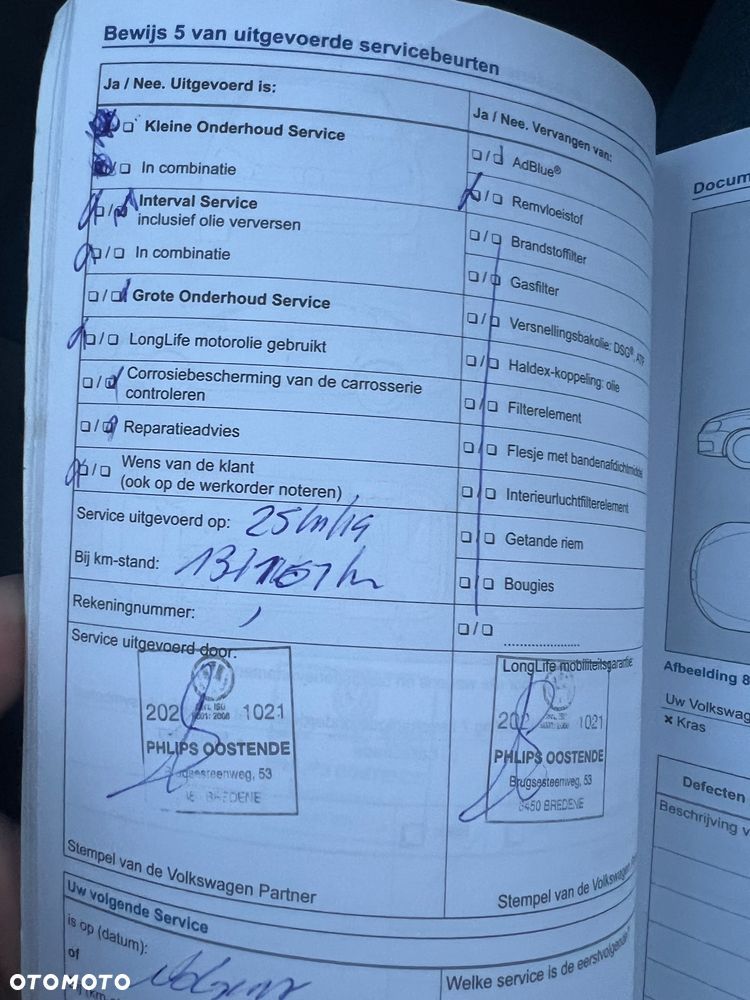 Bewijs 5 van uitgevoerde servicebeurten
Ja / Nee. Uitgevoerd is:
Kleine Onderhoud Service
In combinatie
Interval Service
inclusief olie verversen
In combinatie
Grote Onderhoud Service
LongLife motorolie gebruikt
Corrosiebescherming van de carrosserie
controleren
Reparatieadvies
Wens van de klant
(ook op de werkorder noteren)
Service uitgevoerd op:
Bij km-stand:
Rekeningnummer:
Service uitgevoerd door:
202 1021
PHLIPS OOSTENDE
Brugsesteenweg, 53
BREDENE
Stempel van de Volkswagen Partner
Ja / Nee. Vervangen van:
AdBlue®
Remvloeistof
Brandstoffilter
Gasfilter
Versnellingsbakolie: DSG®, ATF
Haldex-koppeling: olie
Filterelement
Flesje met bandenafdichtmiddel
Interieurluchtfilterelement
Getande riem
Bougies
LongLife mobiliteitsgarantie:
202 1021
PHLIPS OOSTENDE
Brugsesteenweg, 53
8450 BREDENE
Stempel van de Volkswagen
Uw volgende Service
is op (datum):
of
Welke service is de eerstvolgende?
Docum
Afbeelding 8
Uw Volkswag
× Kras
Defecten
Beschrijving v
OTOMOTO